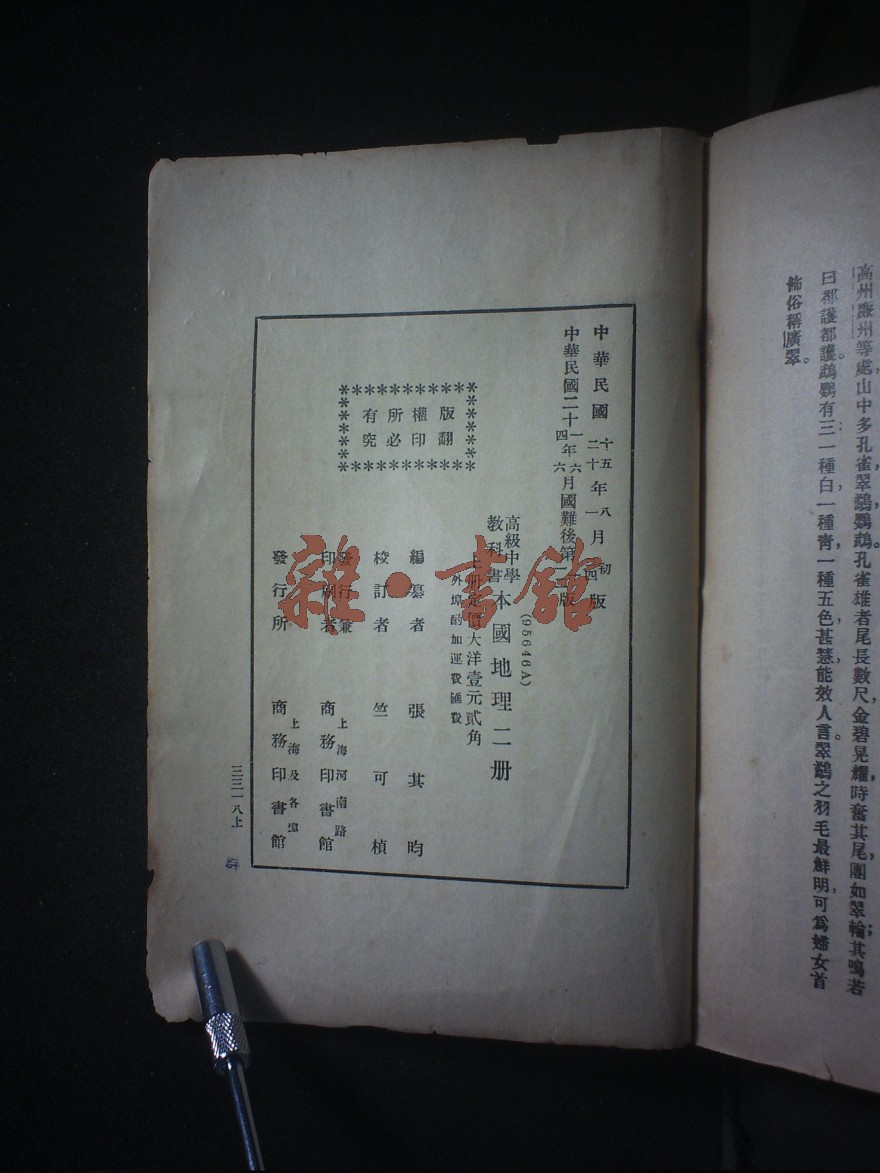 高州廉州等處，山中多孔雀，翠鷸，鸚鵡。孔雀雄者尾長數尺，金碧晃耀，時奮其尾，團如翠輪；其鳴若
曰都護都護。鸚鵡有三：一種白，一種青，一種五色，甚慧，能效人言。翠鷸之羽毛最鮮明，可爲婦女首
飾，俗稱廣翠。
中華民國十五年八月初版
二十一四
中華民國二十一年六月國難後第版
四六
版權所有
翻印必究
(95646A)
高級中學
教科書
本國地理二册
册定價大洋壹元貳角
外埠酌加運費匯費
編纂者 張其昀
校訂者 竺可楨
發行兼
印刷者
上海河南路
商務印書館
發行所
上海及各埠
商務印書館
三三一八上
雜·書館